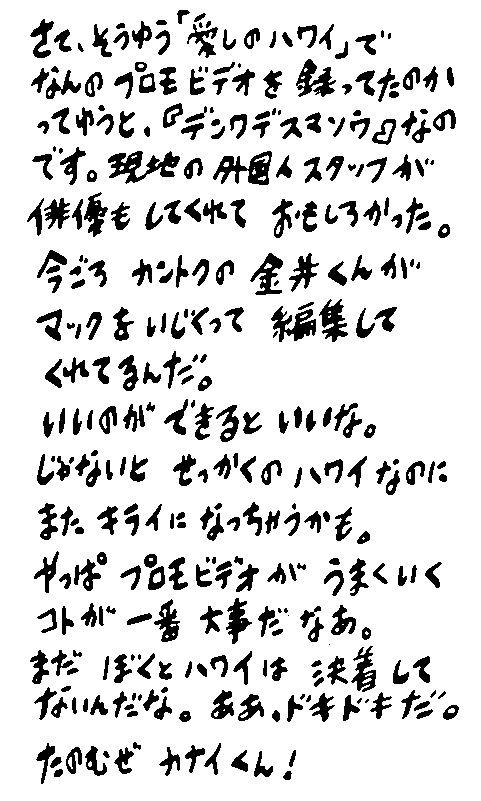 さて、そうゆう「愛しのハワイ」で
なんのプロモビデオを録ってたのか
ってゆうと、『デンワデスマンウ』なの
です。現地の外国人スタッフが
俳優もしてくれて おもしろかった。
今ごろ カントクの 金井くんが
マックをいじくって 編集して
くれてるんだ。
いいのが できると いいな。
じゃないと せっかくの ハワイなのに
また キライに なっちゃうかも。
やっぱ プロモビデオが うまくいく
コトが 一番 大事だ なあ。
まだ ぼくとハワイは 決着して
ないんだな。ああ、ドキドキだ。
たのむぜ カナイくん!